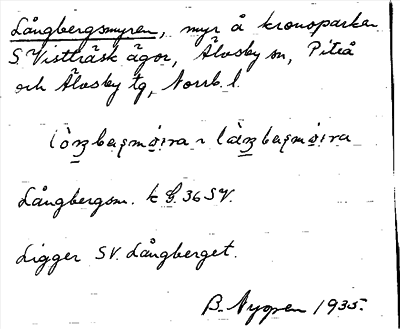 Långbergsmyren, myr å kronoparken
S Vistträsk ägor, Älvsby sn, Piteå
och Älvsby tg, Norrb. l.
Långbergsm. k 36 SV.
Ligger SV. Långberget.
B. Nygren 1935.